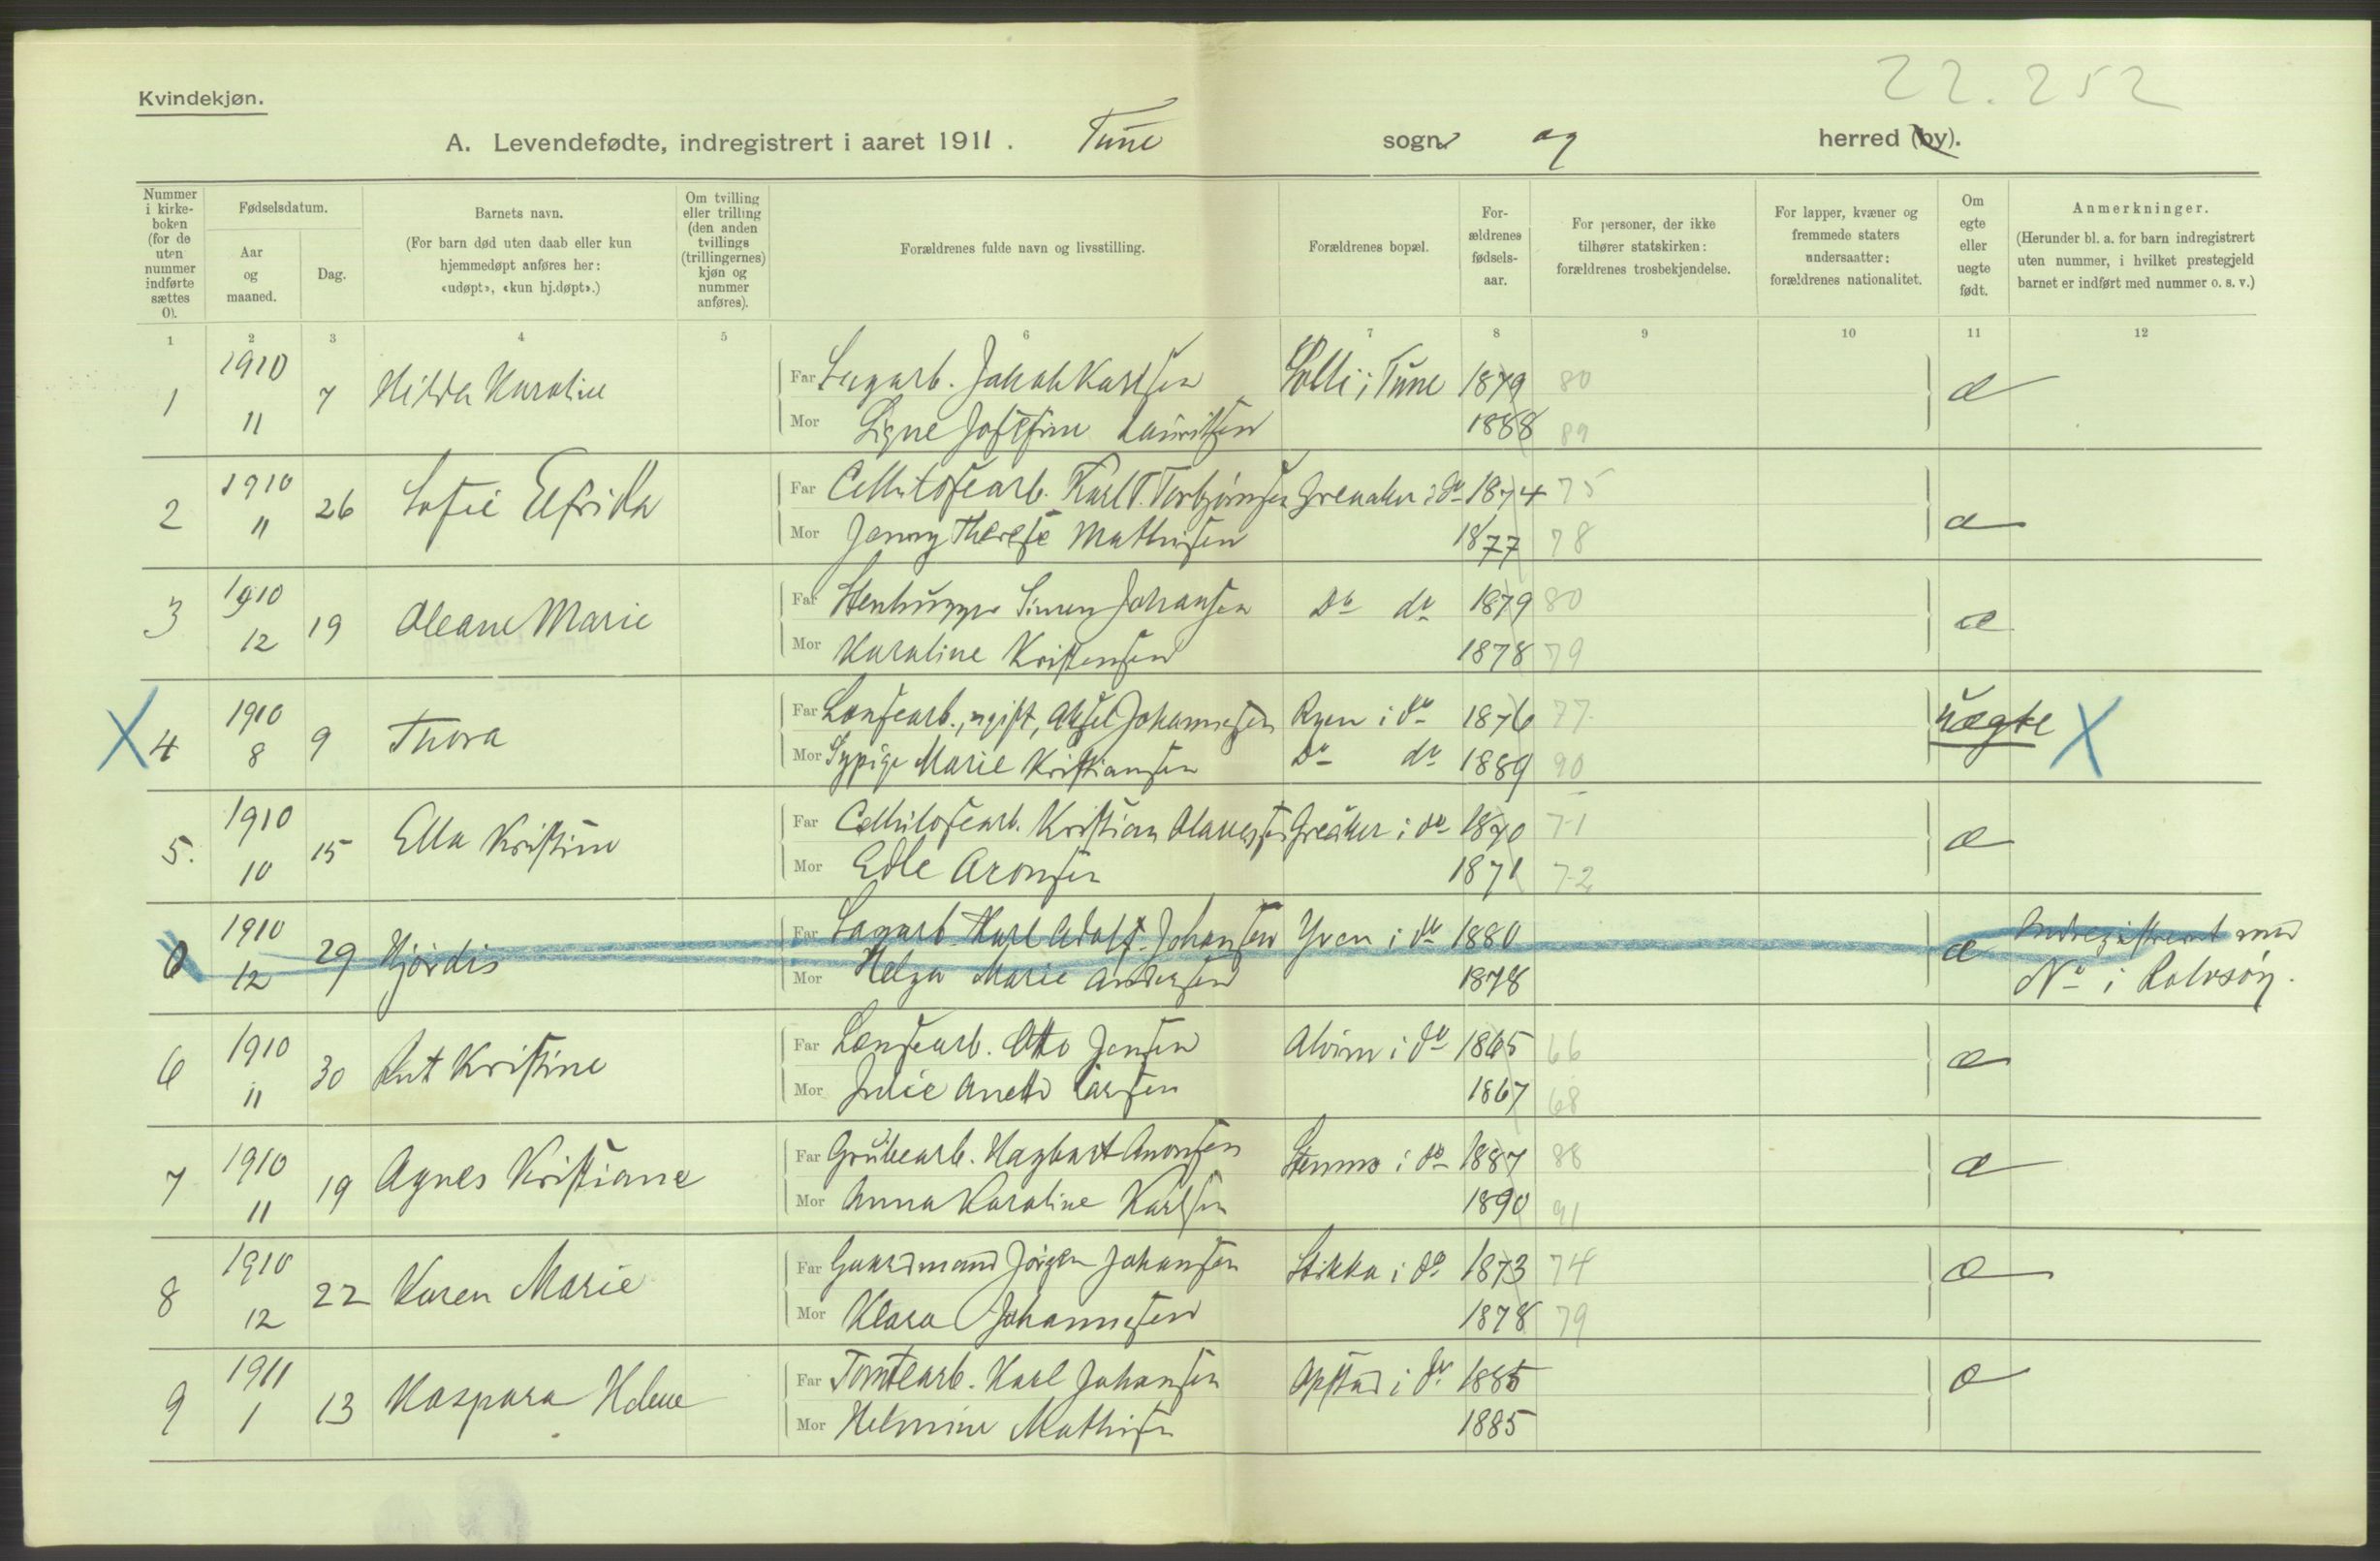 22.252
Kvindekjøn.
A. Levendefødte, indregistrert i aaret 1911. Tune sogn og herred (by).
Nummer i kirkeboken (for de uten nummer indførte sættes 0).
Fødselsdatum.
Aar og maaned.
Dag.
Barnets navn.
(For barn død uten daab eller kun hjemmedøpt anføres her: «udøpt», «kun hj.døpt».)
Om tvilling eller trilling (den anden tvillings (trillingernes) kjøn og nummer anføres).
Forældrenes fulde navn og livsstilling.
Forældrenes bopæl.
Forældrenes fødselsaar.
For personer, der ikke tilhører statskirken: forældrenes trosbekjendelse.
For lapper, kvæner og fremmede staters undersaatter: forældrenes nationalitet.
Om egte eller uegte født.
Anmerkninger.
(Herunder bl. a. for barn indregistrert uten nummer, i hvilket prestegjeld barnet er indført med nummer o. s. v.)
1 2 3 4 5 6 7 8 9 10 11 12
1 1910 11 7 Hilda Karoline Far Sagarb. Jakob Karlsen Solli i Tune 1879 80 æ
Mor Signe Josefine Lauritsen 1888 89
2 1910 11 26 Sofie Elfrida Far Cellulosearb. Karl T. Torbjørnsen Greaaker i do 1874 75 æ
Mor Jenny Therese Mathisen 1877 78
3 1910 12 19 Oleane Marie Far Stenhugger Simen Johansen Do do 1879 80 æ
Mor Karoline Kristensen 1878 79
X 4 1910 8 9 Thora Far Løsearb., ugift, Aksel Johannesen Ryen i do 1876 77 uægte X
Mor Sypige Marie Kristiansen Do do 1889 90
5. 1910 10 15 Ella Kristine Far Cellulosearb. Kristian Olaussen Greåker i do 1870 71 æ
Mor Edle Aronsen 1871 72
0 1910 12 29 Hjördis Far Sagarb. Karl Adolf Johansen Yven i do 1880 æ Indregistreret med
Mor Helga Marie Andersen 1878 No i Rolvsöy.
6 1910 11 30 Rut Kristine Far Løsearb. Otto Jensen Alvim i do 1865 66 æ
Mor Julie Anette Larsen 1867 68
7 1910 11 19 Agnes Kristiane Far Grubearb. Hagbart Aronsen i do 1887 88 æ
Mor Anna Karoline Karlsen 1890 91
8 1910 12 22 Karen Marie Far Gaardmand Jörgen Johansen Stikka i do 1873 74 æ
Mor Klara Johannesen 1878 79
9 1911 1 13 Kaspara Helene Far Tomtearb. Karl Johansen Opstad i do 1885 æ
Mor Helmine Mathisen 1885